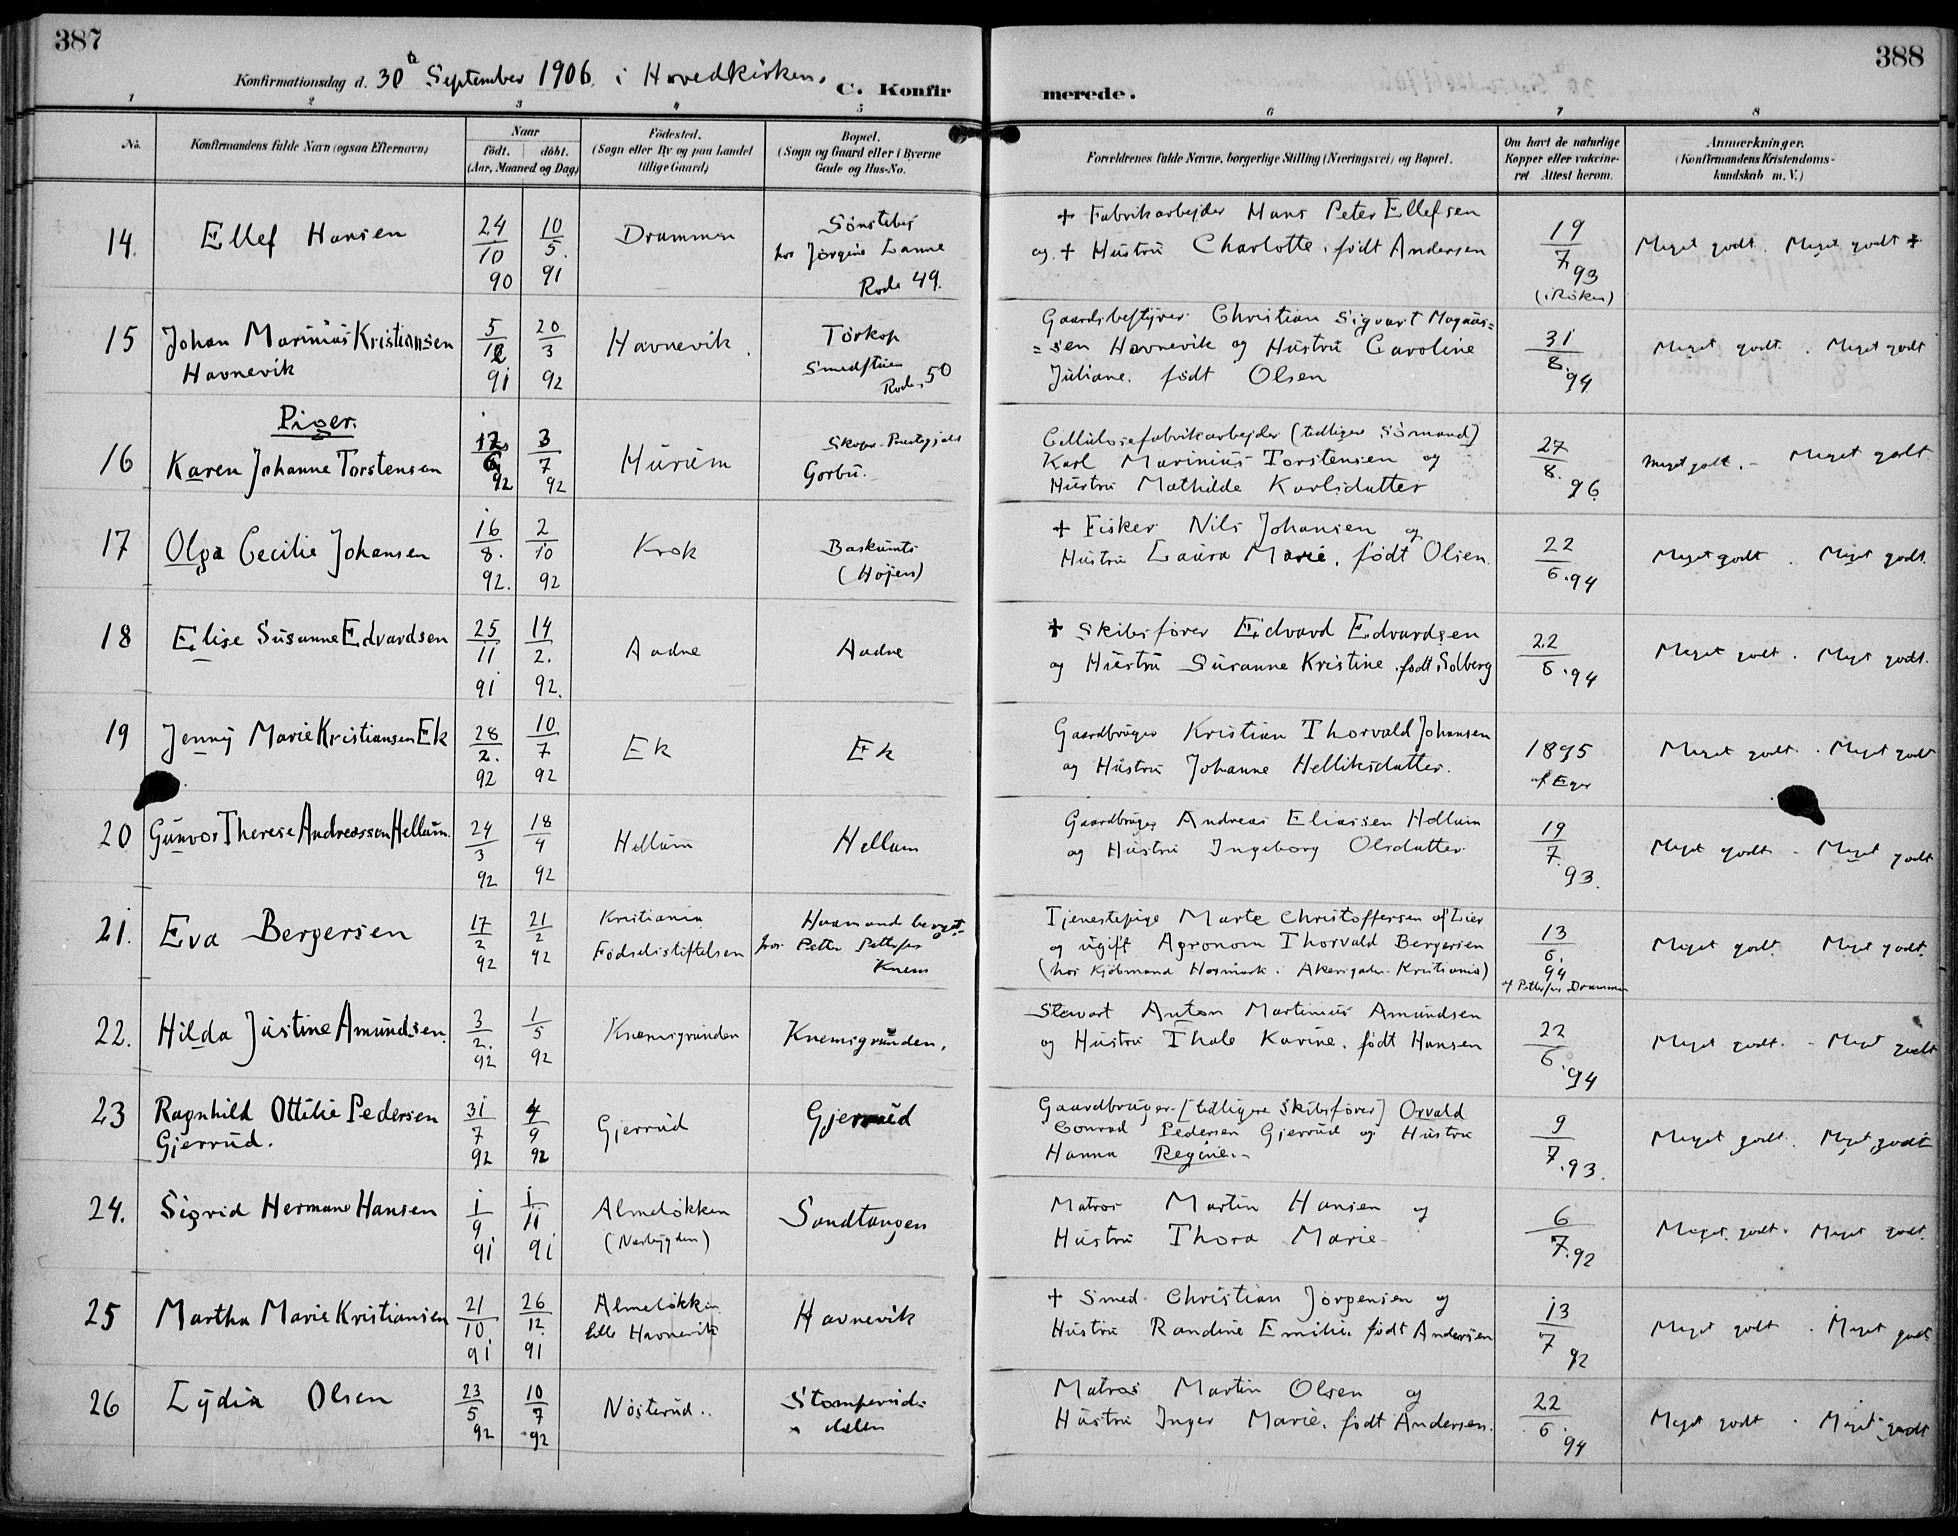 387
388
Konfirmationsdag d. 30te September 1906 i Hovedkirken.
C. Konfir
merede.
1 2 3 4 5 6 7 8
No.
Konfirmandens fulde Navn (ogsaa Efternavn)
Naar
födt. döbt.
(Aar, Maaned og Dag)
Födested.
(Sogn eller By og paa Landet
tillige Gaard)
Bopæl.
(Sogn og Gaard eller i Byerne
Gade og Hus-No.
Forældrenes fulde Navne, borgerlige Stilling (Næringsvei) og Bopæl.
Om havt de naturlige
Kopper eller vakcine-
ret Attest herom.
Anmærkninger.
(Konfirmandens Kristendoms-
kundskab m. V.)
14. Ellef Hansen 24/10 90 10/5. 91 Drammen
Sönsteby
hos Jörgine Lanne
Rode 49.
+ Fabrikarbejder Hans Peter Ellefsen
og + Hustru Charlotte, født Andersen
19/7 93
(i Röken)
Meget godt. Meget godt +
15 Johan Marinius Kristiansen
Havnevik
5/12 91 20/3 92 Havnevik.
Torkop
Smedstuen
Rode 50
Gaardsbestyrer Christian Sigvart Magnus=
=sen Havnevik og Hustru Caroline
Juliane. født Olsen
31/8. 94
Meget godt. Meget godt
Piger.
16 Karen Johanne Torstensen 12/6 92 3/7 92 Hurum
Skoger Prestegjeld
Gorbu.
Cellulosefabrikarbejder (tidligere Sömand)
Karl Marinius Torstensen og
Hustru Mathilde Karlsdatter
27/8. 96
Meget godt. - Meget godt
17 Olga Cecilie Johansen 16/8. 92. 2/10 92 Krok
(Højen)
+ Fisker Nils Johansen og
Hustru Laura Marie, født Olsen.
22/6. 94
Meget godt. Meget godt.
18 Elise Susanne Edvardsen 25/11 91 14/2. 92. Aadne Aadne
+ Skibsfører Edvard Edvardsen
og Hustru Susanne Kristine, født Solberg
22/6. 94
Meget godt. Meget godt.
19 Jenny Marie Kristiansen Ek 28/2. 92 10/7 92 Ek Ek
Gaardbruger Kristian Thorvald Johansen
og Hustru Johanne Helliksdatter.
1895
af Eger
Meget godt. Meget godt
20 Gunvor Therese Andreassen Hellum. 24/3 92 18/4 92 Hellum Hellum
Gaardbruger Andreas Eliassen Hellum
og Hustru Ingeborg Olsdatter
19/7. 93.
Meget godt - Meget godt
21. Eva Bergersen 17/2 92 21/2 92
Kristiania
Födselsstiftelsen
hos Petter Pettersen
Knem
Tjenestepige Marte Christoffersen af Lier
og ugift Agronom Thorvald Bergersen
(hos Kjöbmand Hosmark i Akersgaden Kristiania)
13/6. 94
Drammen
Meget godt. Meget godt.
22. Hilda Justine Amundsen. 3/2. 92 1/5 92 Knemsgrunden Knemsgrunden.
Stewart Anton Martinius Amundsen
og Hustru Thale Karine, født Hansen
22/6. 94
Meget godt. - Meget godt
23 Ragnhild Ottilie Pedersen
Gjerrud.
31/7 92 4/9 92 Gjerrud Gjerrud
Gaardbruger [tidligere Skibsfører] Orvald
Conrad Pedersen Gjerrud og Hustru
Hanna Regine.
9/7. 93.
Meget godt. Meget godt
24. Sigrid Hermane Hansen 1/9 91 1/11 91
Almelökken
(Nærbygden)
Sandtangen
Matros Martin Hansen og
Hustru Thora Marie
6/7. 92
Meget godt. Meget godt.
25 Martha Marie Kristiansen 21/10 91 26/12. 91
Almelökken
lille Havnevik
Havnevik
+ Smed Christian Jörgensen og
Hustru Randine Emilie født Andersen
13/7 92
Meget godt. Meget godt
26 Lydia Olsen 23/5 92 10/7 92 Nösterud..
Stomperud-
dalen
Matros Martin Olsen og
Hustru Inger Marie, født Andersen.
22/6. 94
Meget godt. Meget godt